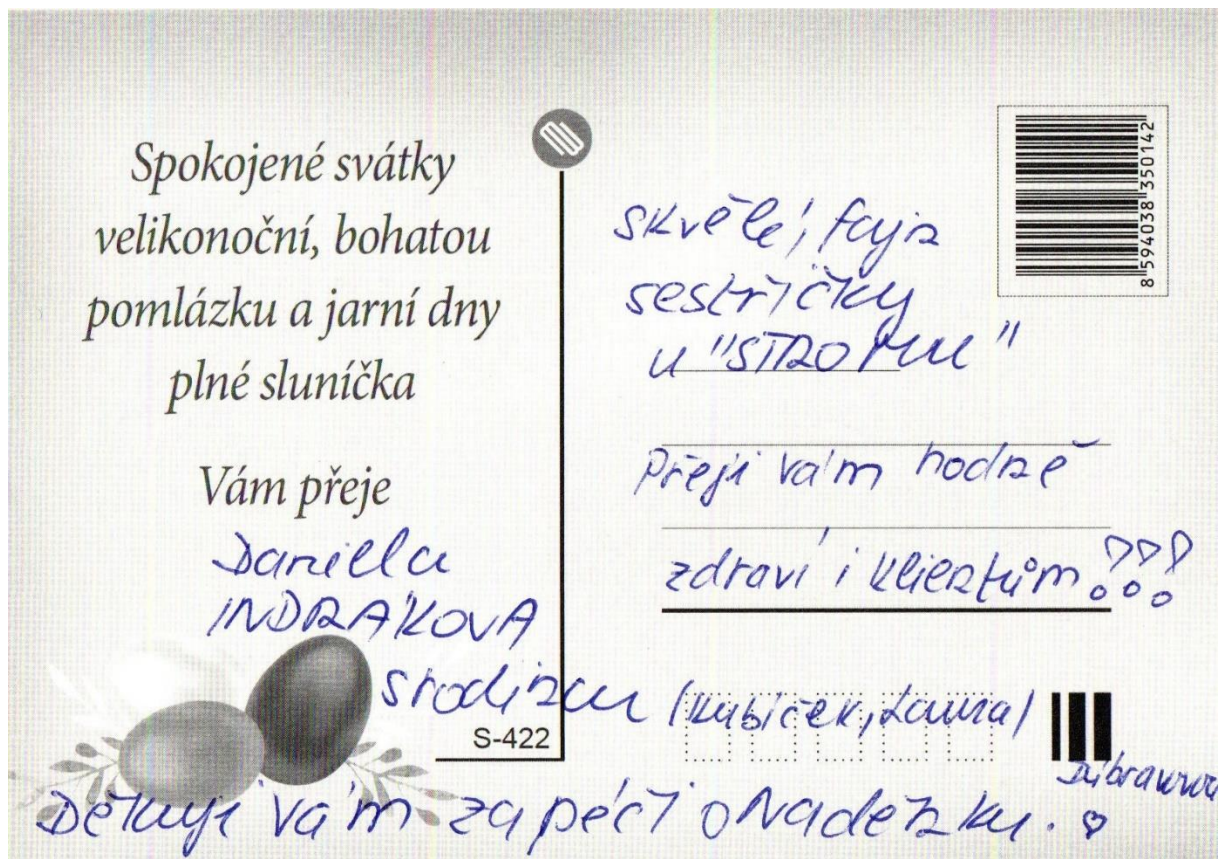 Spokojené svátky
velikonoční, bohatou
pomlázku a jarní dny
plné sluníčka
Vám přeje
Daniella
INDRÁKOVA
S-422
8 594038 350142
skvělé, fajn
sestřičky
u "STROMU"
Přeji vám hodně
zdraví i klientům!!!
s rodinou (Kubíček, Laura)
Děkuji vám za péči o Naděnku.